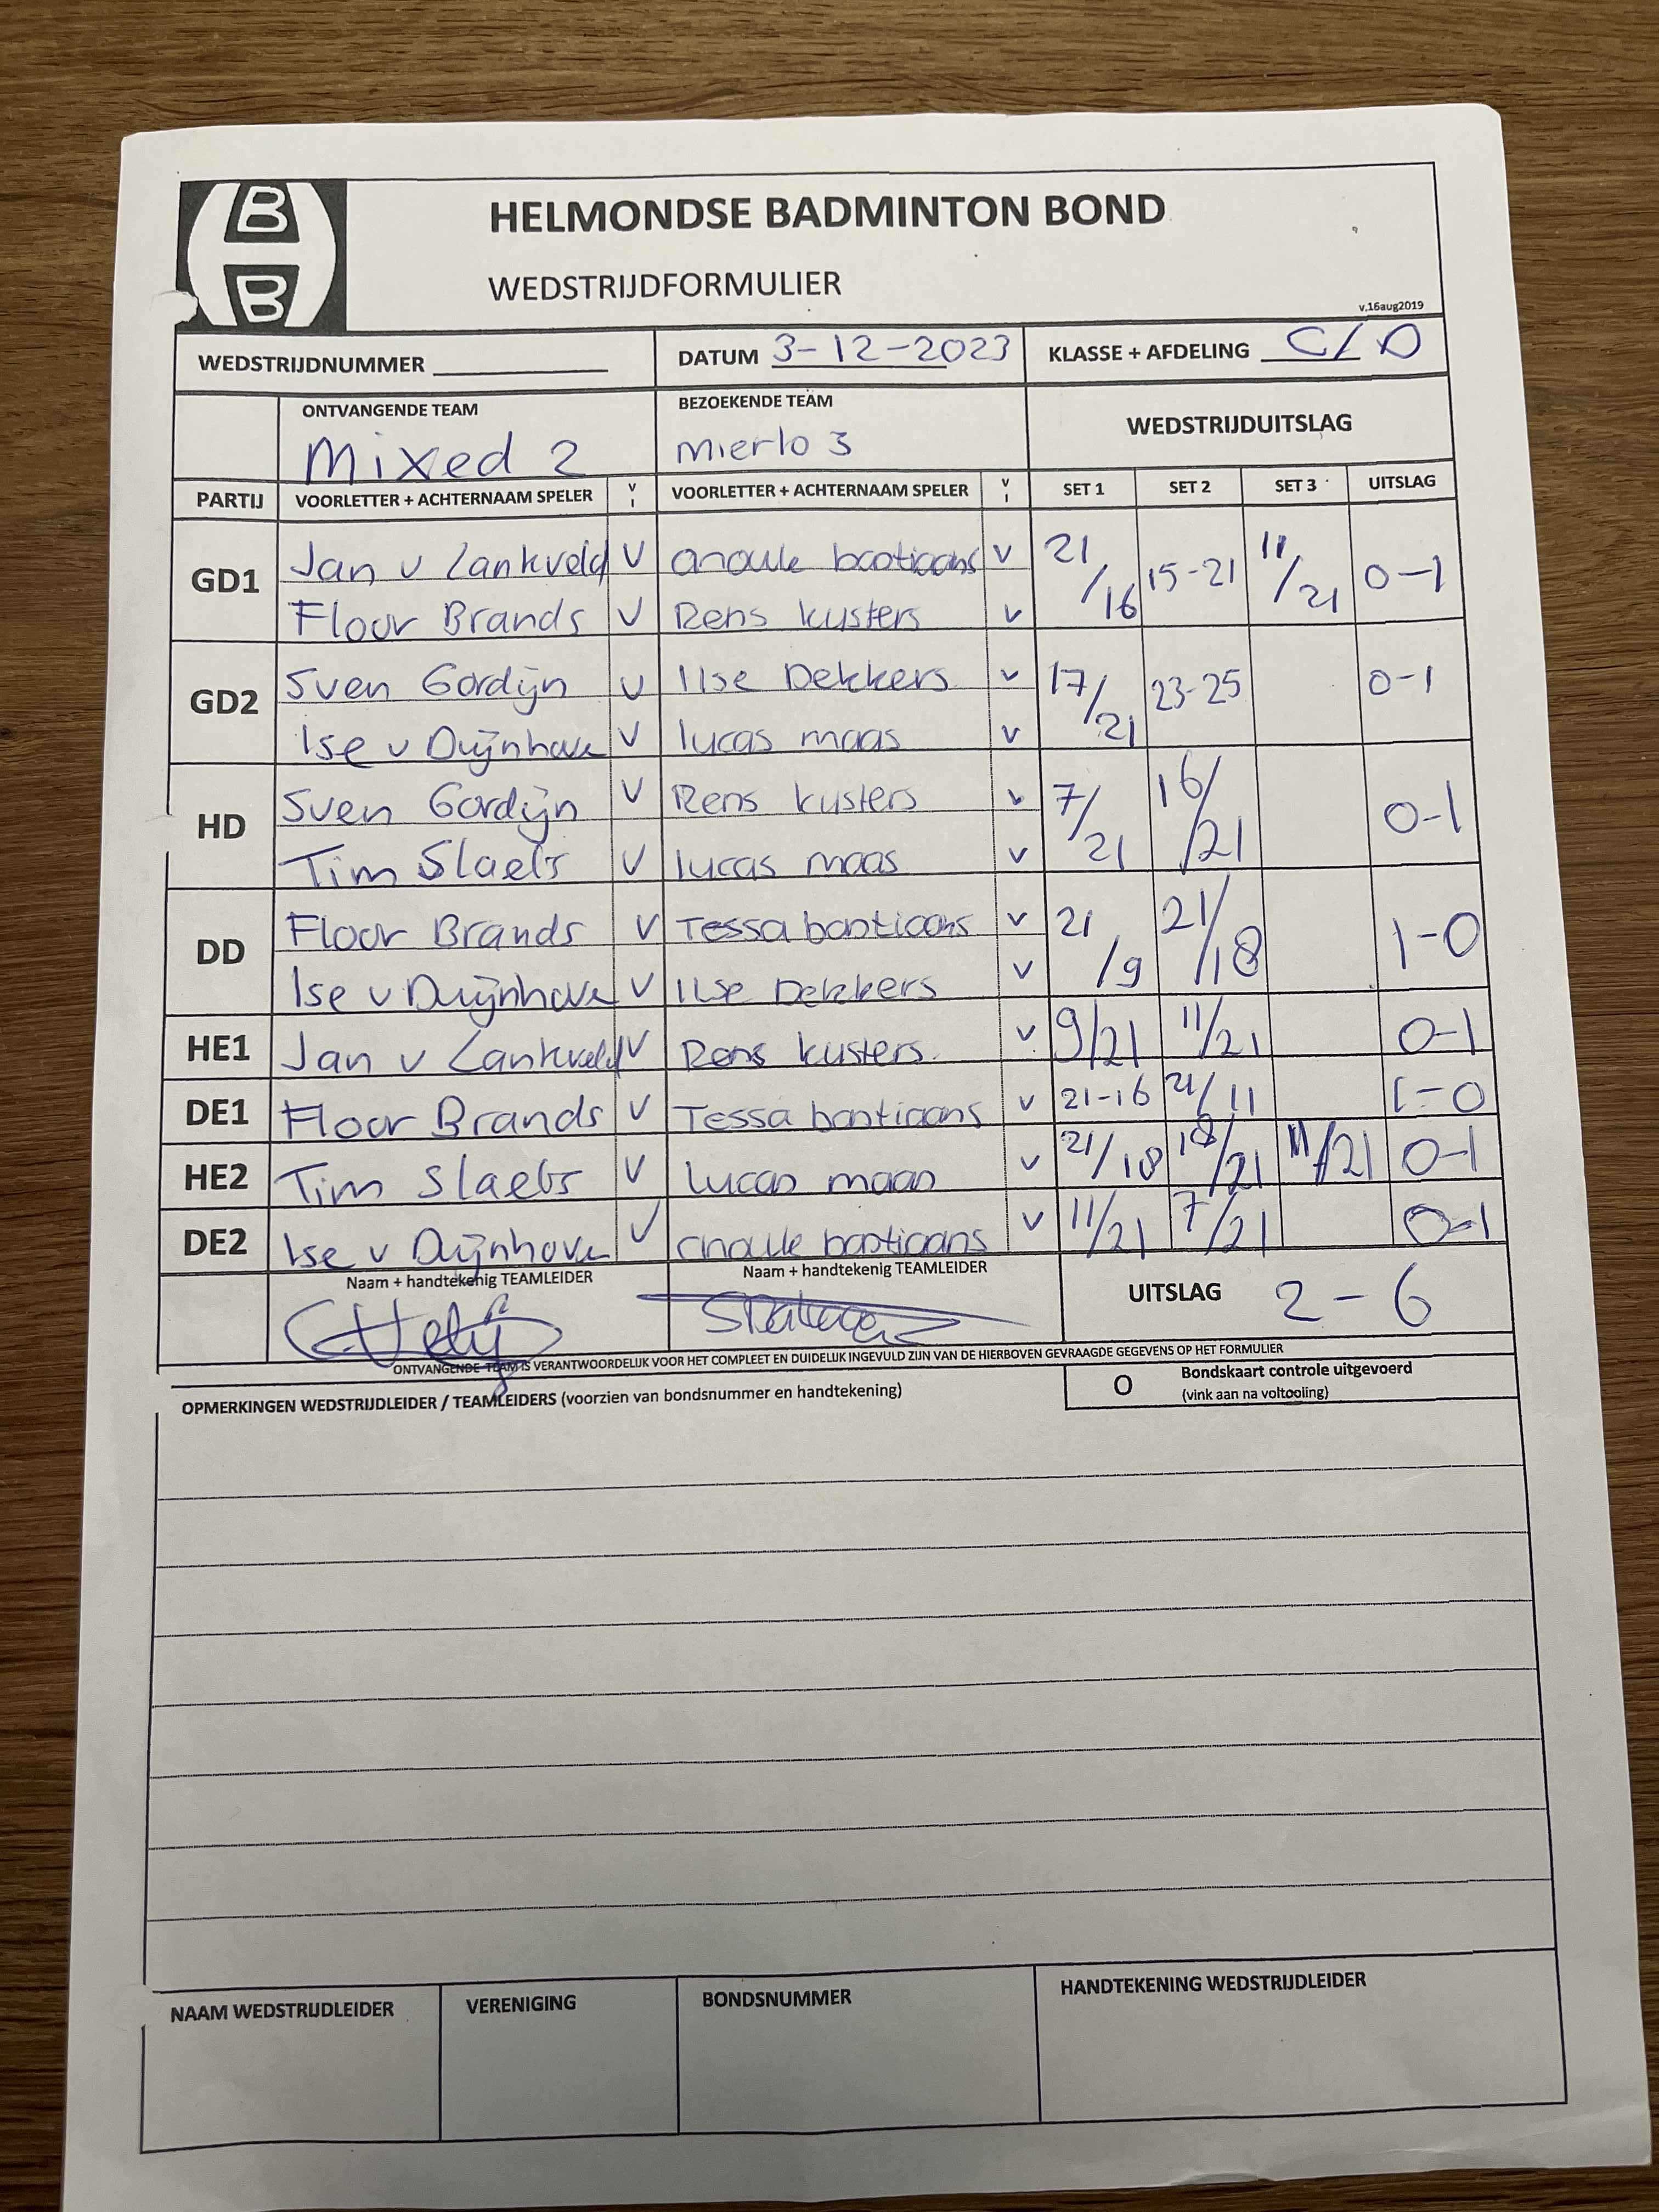 B
B
HELMONDSE BADMINTON BOND
WEDSTRIJDFORMULIER
v.16aug2019
WEDSTRIJDNUMMER DATUM 3-12-2023 KLASSE + AFDELING C/D
ONTVANGENDE TEAM BEZOEKENDE TEAM WEDSTRIJDUITSLAG
Mixed 2 Mierlo 3
PARTIJ VOORLETTER + ACHTERNAAM SPELER V I VOORLETTER + ACHTERNAAM SPELER V I SET 1 SET 2 SET 3 UITSLAG
GD1 Jan v Lankveld V anouk bastiaans V 21/16 15-21 11/21 0-1
Floor Brands V Rens kusters V
GD2 Sven Gordijn V Ilse Dekkers V 17/21 23-25 0-1
Ise v Duijnhove V lucas maas V
HD Sven Gordijn V Rens kusters V 7/21 16/21 0-1
Tim Slaets V lucas maas V
DD Floor Brands V Tessa bastiaans V 21/9 21/18 1-0
Ise v Duijnhove V Ilse Dekkers V
HE1 Jan v Lankveld V Rens kusters V 9/21 11/21 0-1
DE1 Floor Brands V Tessa bastiaans V 21-16 21/11 1-0
HE2 Tim Slaets V lucas maas V 21/18 18/21 11/21 0-1
DE2 Ise v Duijnhove V anouk bastiaans V 11/21 7/21 0-1
Naam + handtekenig TEAMLEIDER Naam + handtekenig TEAMLEIDER UITSLAG 2-6
ONTVANGENDE TEAM IS VERANTWOORDELIJK VOOR HET COMPLEET EN DUIDELIJK INGEVULD ZIJN VAN DE HIERBOVEN GEVRAAGDE GEGEVENS OP HET FORMULIER
OPMERKINGEN WEDSTRIJDLEIDER / TEAMLEIDERS (voorzien van bondsnummer en handtekening) O Bondskaart controle uitgevoerd
(vink aan na voltooling)
NAAM WEDSTRIJDLEIDER VERENIGING BONDSNUMMER HANDTEKENING WEDSTRIJDLEIDER